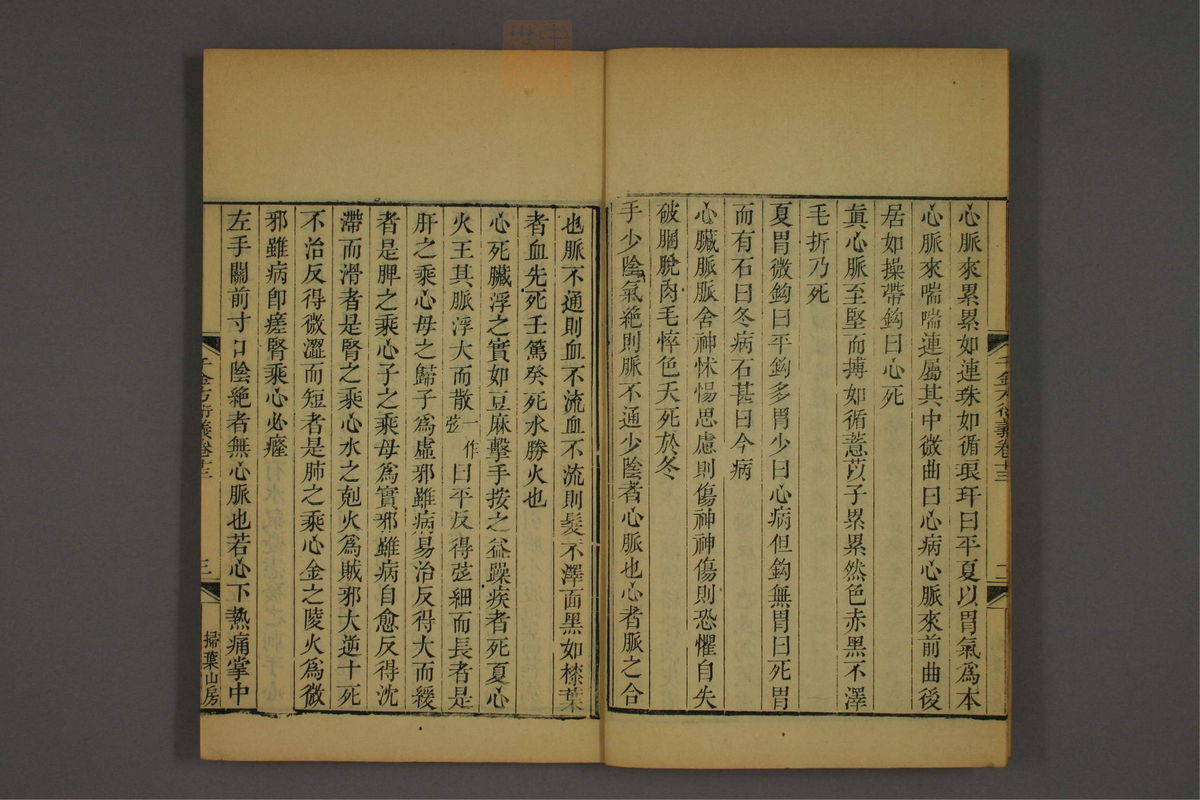 心脈來累累如連珠如循琅玕曰平夏以胃氣爲本
心脈來喘喘連屬其中微曲曰心病心脈來前曲後
居如操帶鉤曰心死
眞心脈至堅而搏如循薏苡子累累然色赤黑不澤
毛折乃死
夏胃微鉤曰平鉤多胃少曰心病但鉤無胃曰死胃
而有石曰冬病石甚曰今病
心臟脈脈舍神怵惕思慮則傷神神傷則恐懼自失
破䐃脫肉毛悴色夭死於冬
手少陰氣絶則脈不通少陰者心脈也心者脈之合
千金方衍義卷十三 二
也脈不通則血不流血不流則髮不澤面黑如漆葉
者血先死壬篤癸死水勝火也
心死臟浮之實如豆麻擊手按之益躁疾者死夏心
火王其脈浮大而散一作弦曰平反得弦細而長者是
肝之乘心母之歸子爲虛邪雖病易治反得大而緩
者是脾之乘心子之乘母爲實邪雖病自愈反得沈
滯而滑者是腎之乘心水之尅火爲賊邪大逆十死
不治反得微澀而短者是肺之乘心金之陵火爲微
邪雖病卽瘥腎乘心必癃
左手關前寸口陰絶者無心脈也若心下熱痛掌中
千金方衍義卷十三 三 掃葉山房